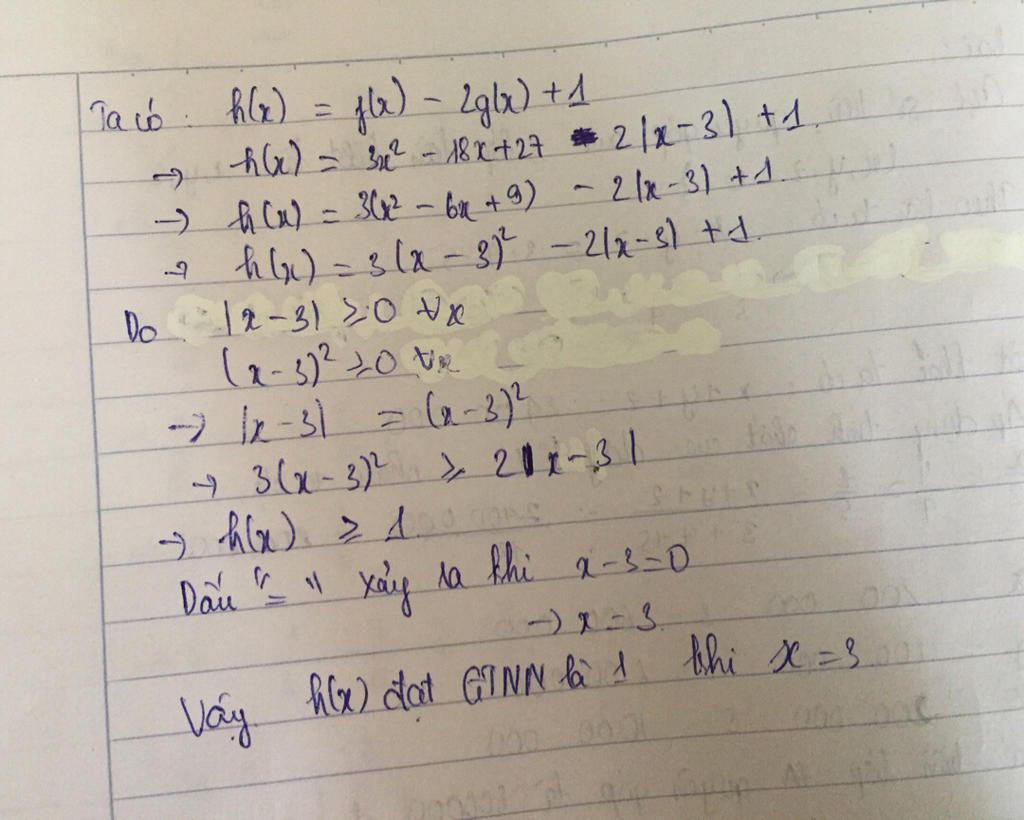 Ta có : h(x) = f(x) - 2g(x) + 1
→ h(x) = 3x² - 18x + 27 - 2|x-3| + 1.
→ h(x) = 3(x² - 6x + 9) - 2|x-3| + 1.
→ h(x) = 3(x-3)² - 2|x-3| + 1.
Do |x-3| ≥ 0 ∀x
(x-3)² ≥ 0 ∀x
→ |x-3| = (x-3)²
→ 3(x-3)² ≥ 2|x-3|
→ h(x) ≥ 1.
Dấu "=" xảy ra khi x-3=0
→ x = 3.
Vậy h(x) đạt GTNN là 1 khi x = 3